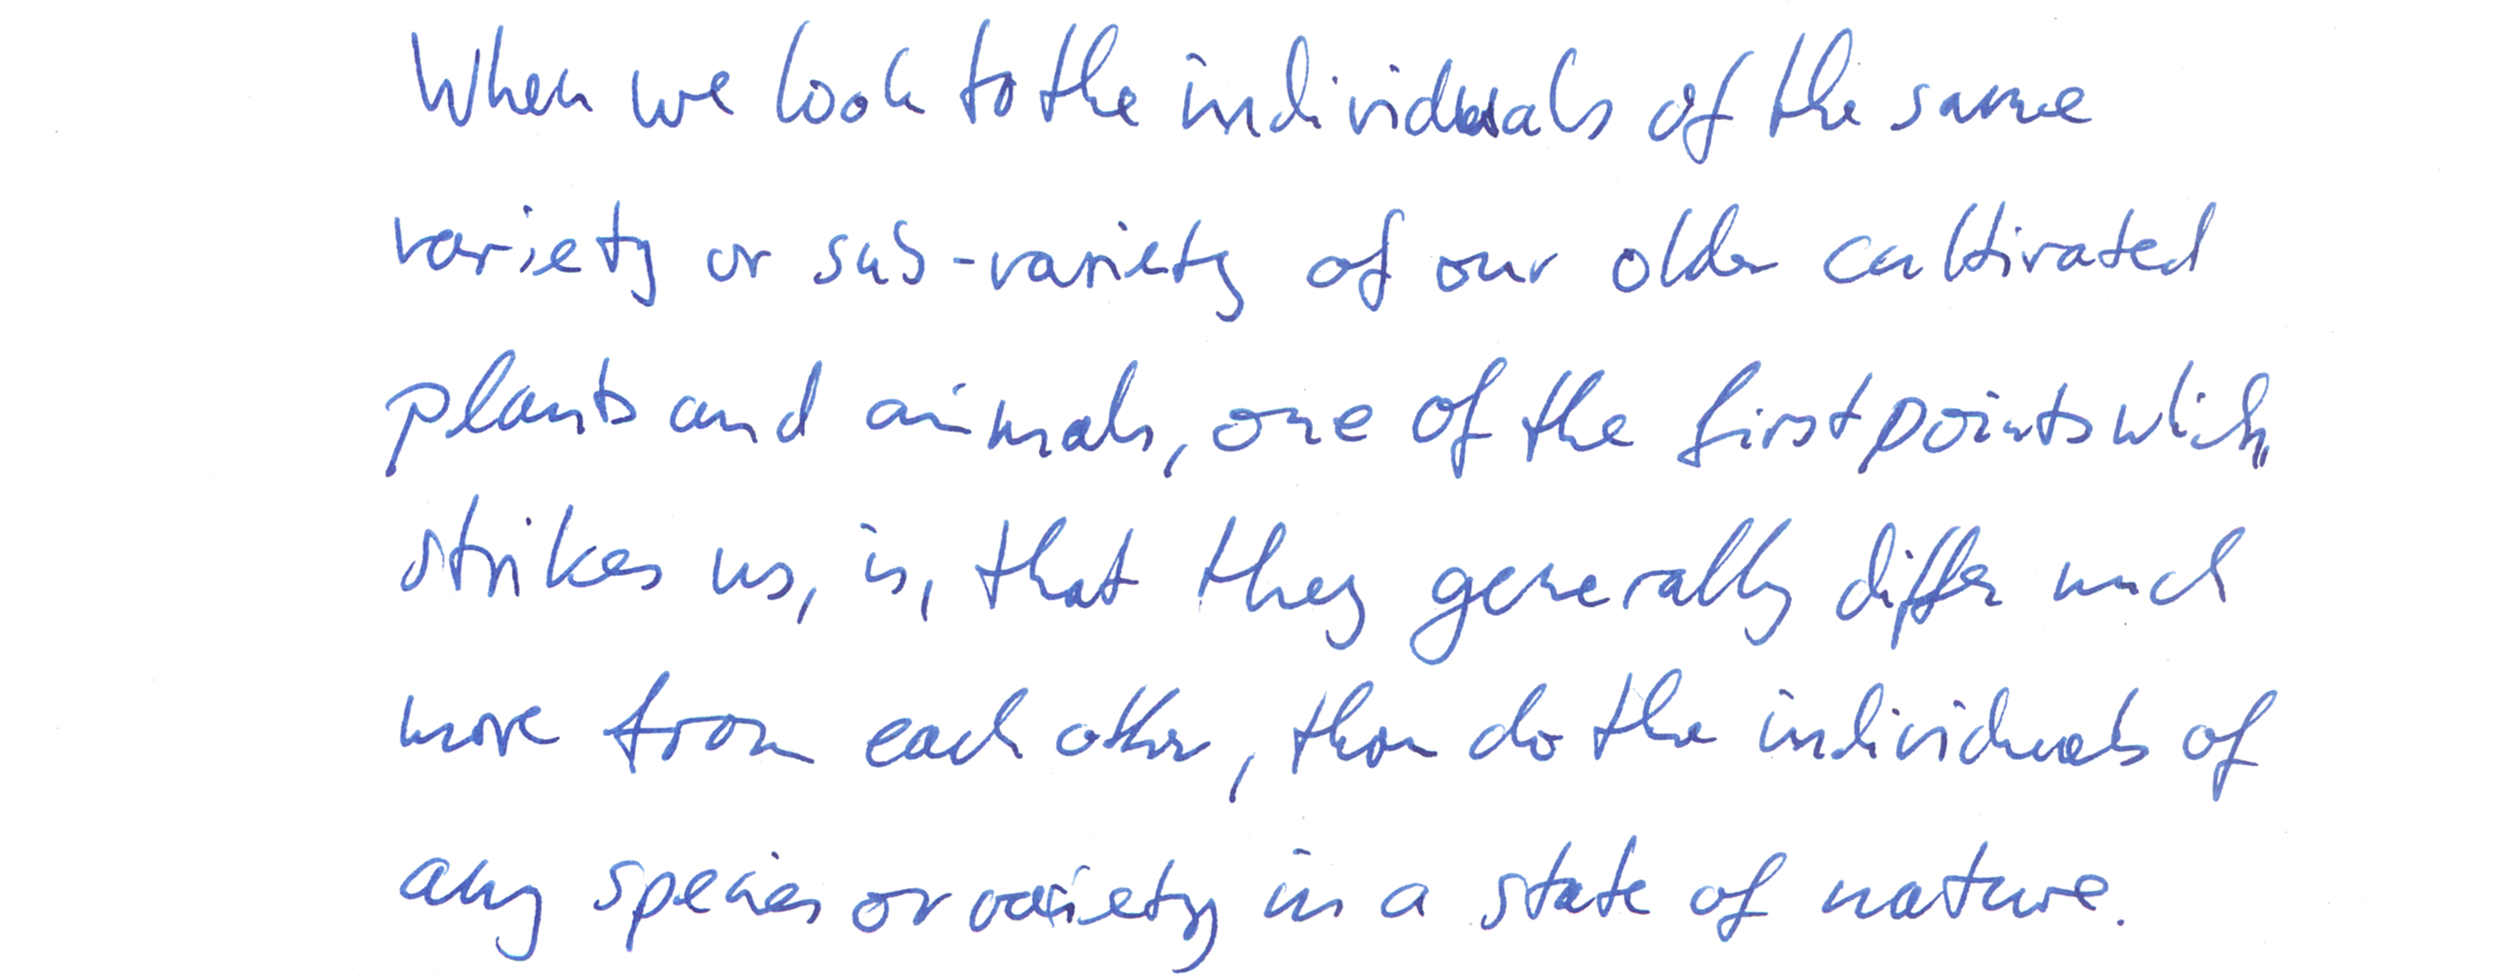 When we look to the individuals of the same
variety or sub-variety of our older cultivated
plants and animals, one of the first points which
strikes us, is, that they generally differ much
more from each other, than do the individuals of
any species or variety in a state of nature.